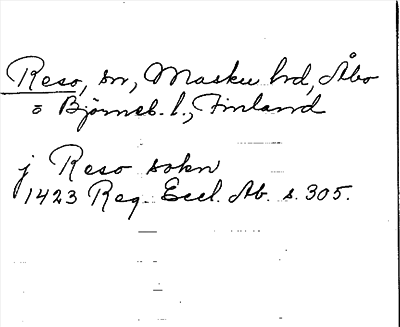 Reso, sn, Masku hd, Åbo
o Björneb. l., Finland
j Reso sokn
1423 Reg. Eccl. Ab. s. 305.